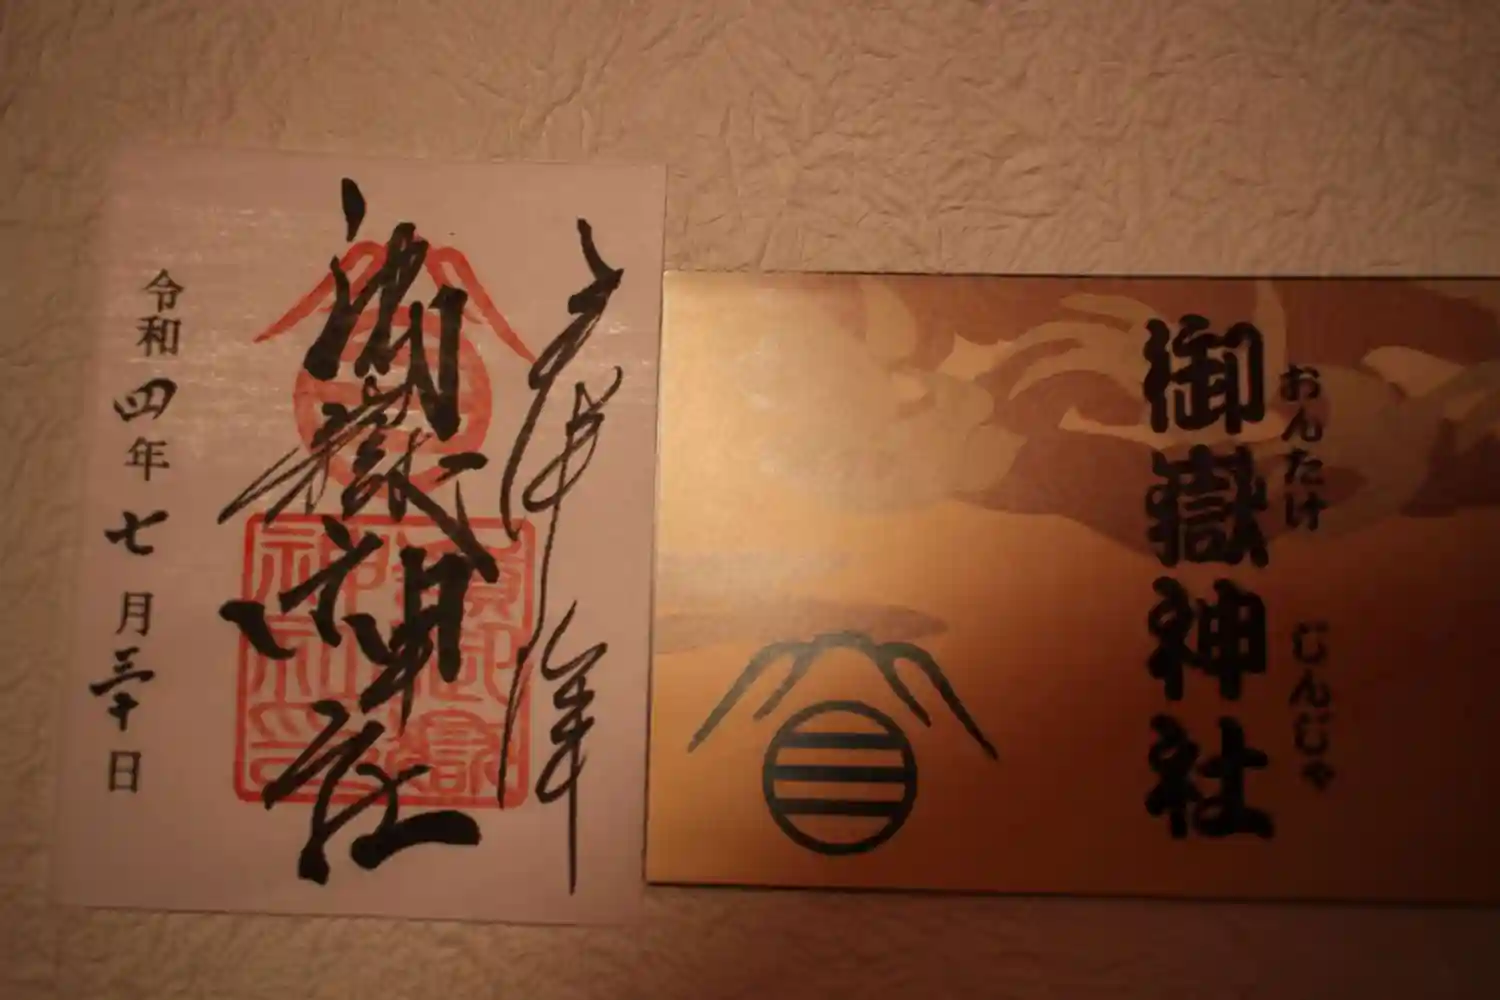 御嶽神社
令和四年七月三十日
おんたけ じんじゃ
御嶽神社